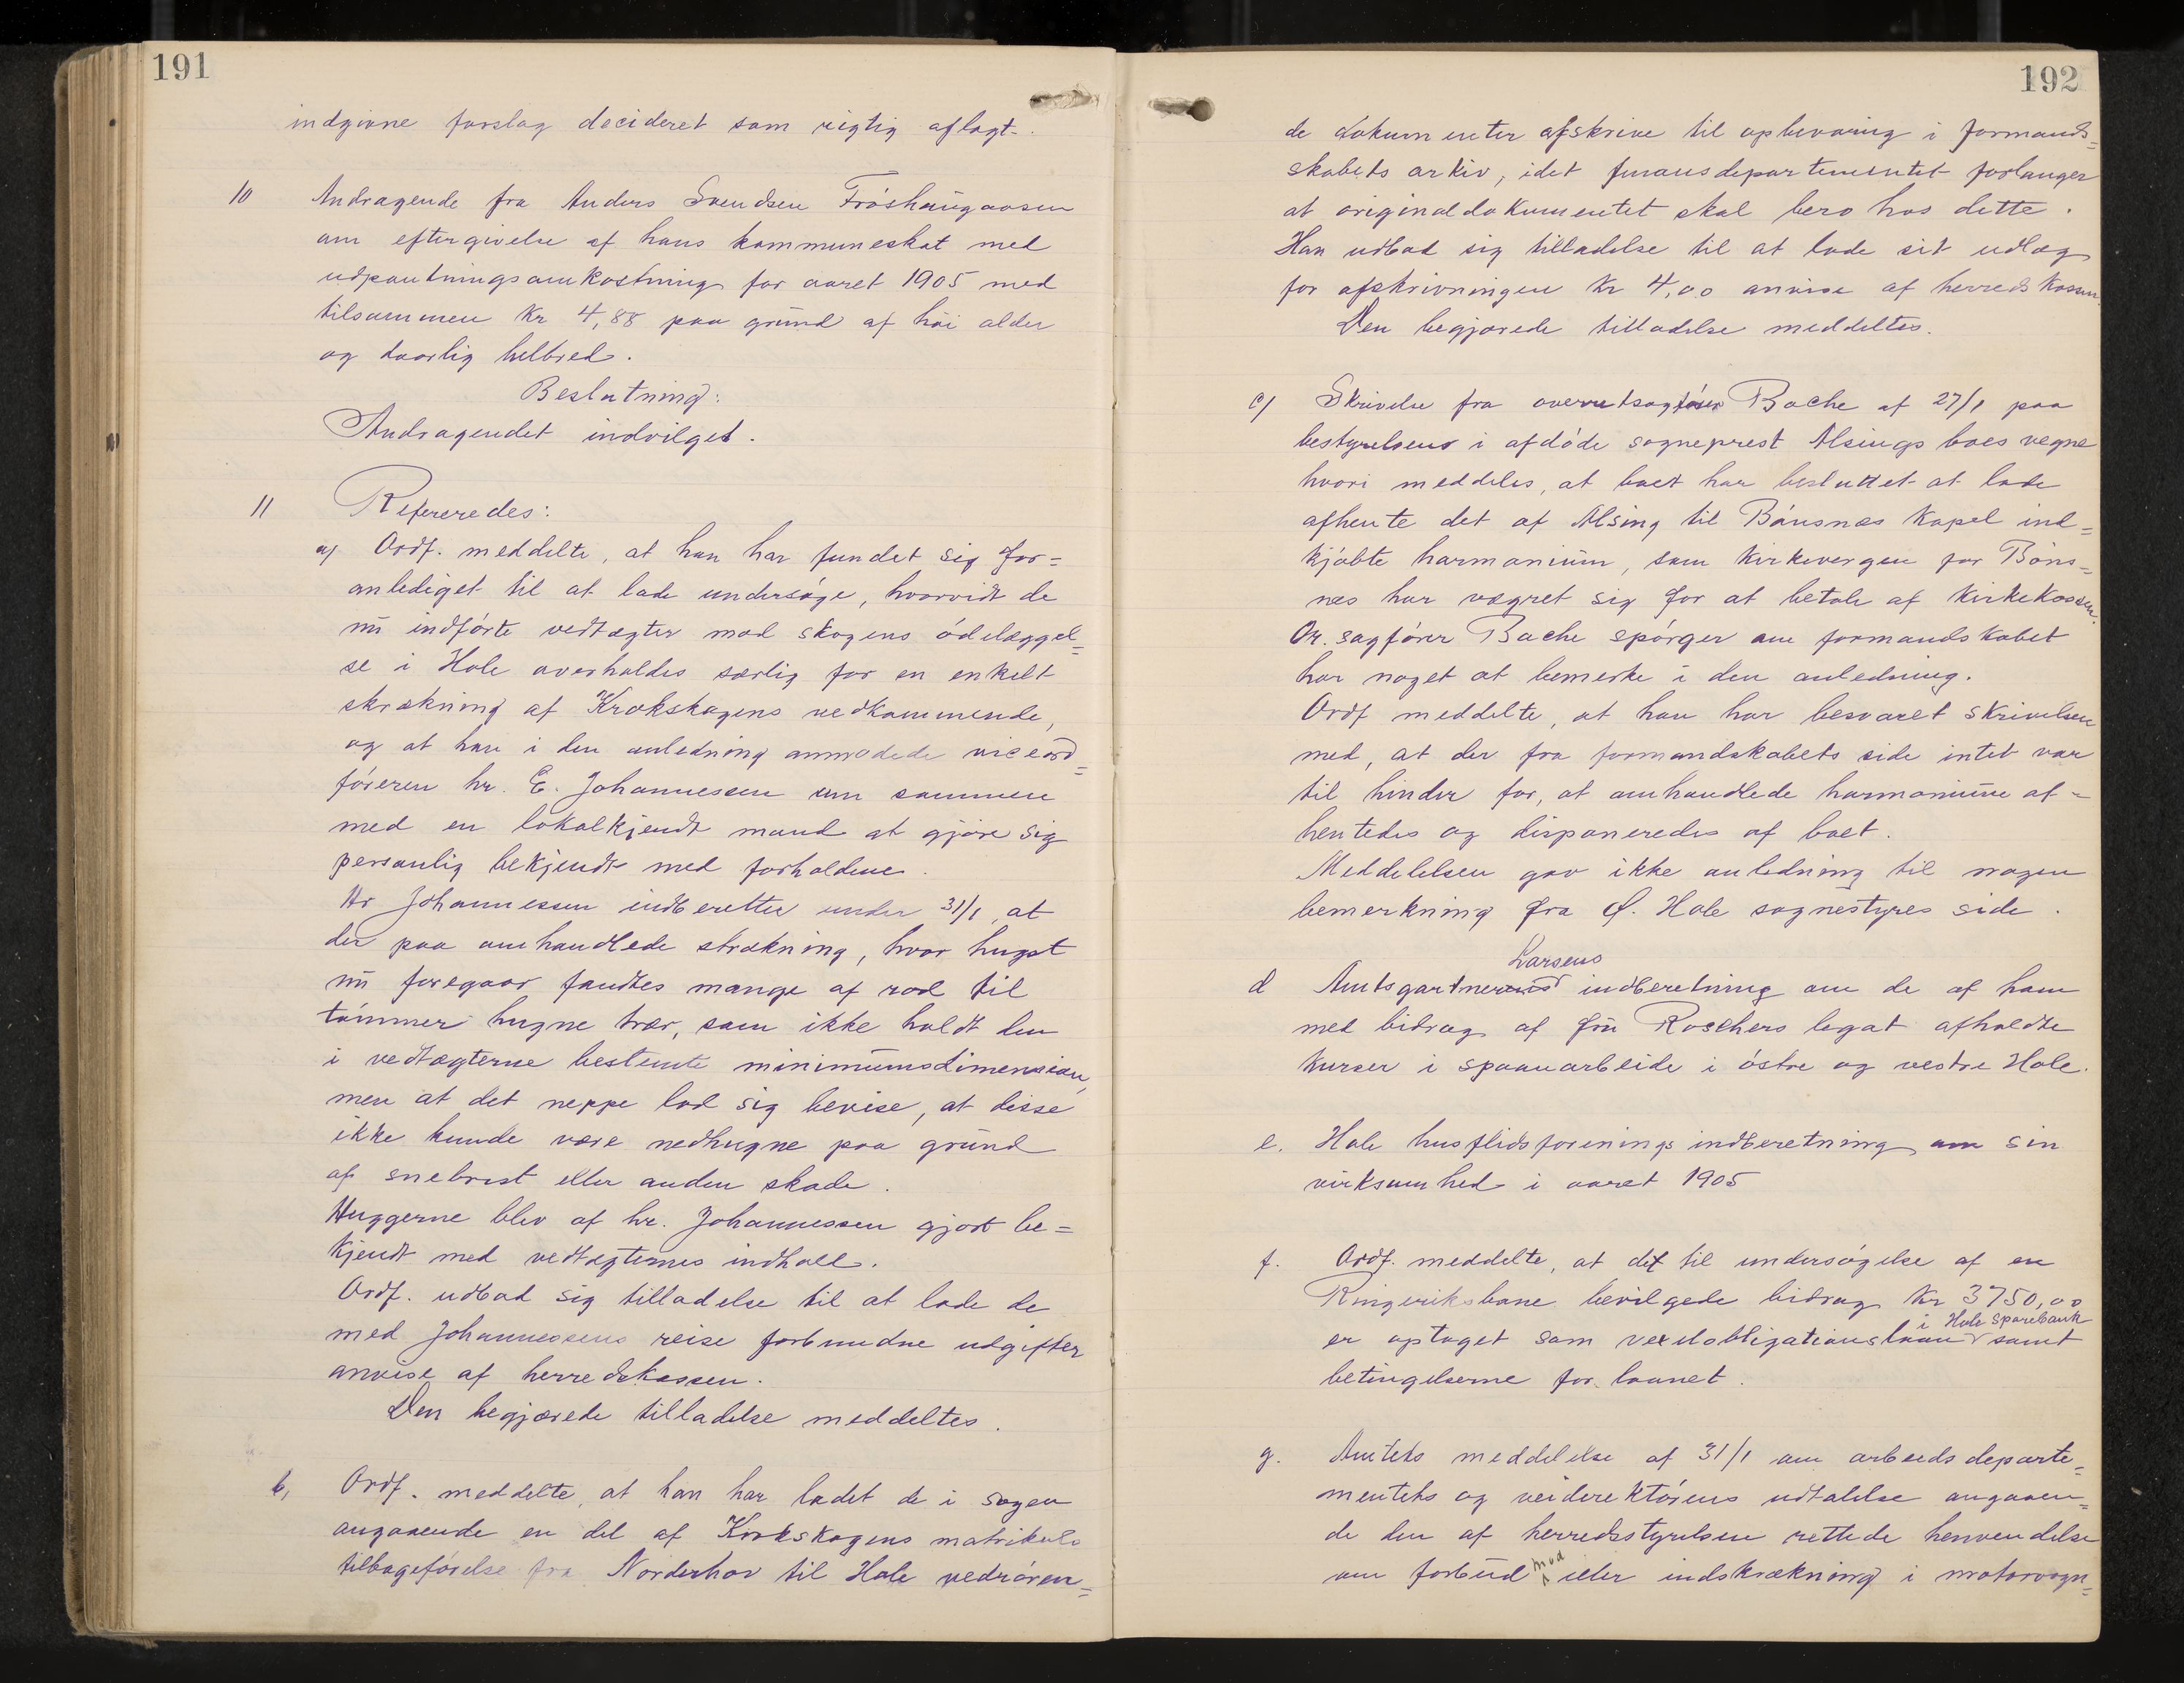 191
indgivne forslag decideret som rigtig aflagt.
10 Andragende fra Anders Svendsen Fröshaugaasen
om eftergivelse af hans kommuneskat med
udpantningsomkostning for aaret 1905 med
tilsammen kr 4,88 paa grund af höi alder
og daarlig helbred.
Beslutning:
Andragendet indvilget.
11 Refereredes:
a) Ordf. meddelte, at han har fundet sig for=
anlediget til at lade undersöge, hvorvidt de
nu indförte vedtægter mod skogens ödelæggel=
se i Hole overholdes særlig for en enkelt
strækning af Krokskogens vedkommende,
og at han i den anledning anmodede viceord=
föreren hr. E. Johannessen om sammen
med en lokalkjendt mand at gjöre sig
personlig bekjendt med forholdene.
Hr Johannessen indberetter under 31/1, at
der paa omhandlede strækning, hvor hugst
nu foregaar fandtes mange af rod til
tömmer hugne trær, som ikke holdt den
i vedtægterne bestemte minimumsdimension,
men at det neppe lod sig bevise, at disse
ikke kunde være nedhugne paa grund
af snebrøst eller anden skade.
Huggerne blev af hr. Johannessen gjort be=
kjendt med vedtægternes indhold.
Ordf. udbad sig tilladelse til at lade de
med Johannessens reise forbundne udgifter
anvise af herredskassen.
Den begjærede tilladelse meddeltes.
b, Ordf. meddelte, at han har ladet de i sagen
angaaende en del af Krokskogens matrikuls
tilbageförelse fra Norderhov til Hole vedrören=
192
de dokumenter afskrive til opbevaring i formands=
skabets arkiv, idet finansdepartementet forlanger
at originaldokumentet skal bero hos dette.
Han udbad sig tilladelse til at lade sit udlæg
for afskrivningen kr 4,00 anvise af herredskassen.
Den begjærede tilladelse meddeltes.
c) Skrivelse fra overretsagförer Bache af 27/1 paa
bestyrelsens i afdöde sogneprest Alsings boes vegne
hvori meddeles, at boet har besluttet at lade
afhente det af Alsing til Bönsnæs kapel ind=
kjöbte harmonium, som kirkevergen for Böns=
næs har vægret sig for at betale af kirkekassen.
Or. sagförer Bache spörger om formandskabet
har noget at bemerke i den anledning.
Ordf meddelte, at han har besvaret skrivelsen
med, at der fra formandskabets side intet var
til hinder for, at omhandlede harmonium af=
hentedes og disponeredes af boet.
Meddelelsen gav ikke anledning til nogen
bemerkning fra Ø. Hole sognestyres side.
d Amtsgartner Larsens indberetning om de af ham
med bidrag af fru Roschers legat afholdte
kurser i spaanarbeide i östre og vestre Hole.
e. Hole husflidsforenings indberetning om sin
virksomhed i aaret 1905
f. Ordf. meddelte, at det til undersögelse af en
Ringeriksbane bevilgede bidrag kr 3750,00
er optaget som vexelobligationslaan i Hole Sparebank samt
betingelserne for laanet.
g. Amtets meddelelse af 31/1 om arbeidsdeparte=
mentets og veidirektörens udtalelse angaaen=
de den af herredsstyrelsen rettede henvendelse
om forbud mod eller indskrækning i motorvogn=